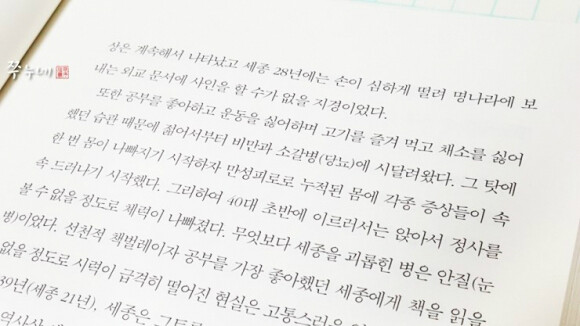 쭈누베
상은 계속해서 나타났고 세종 28년에는 손이 심하게 떨려 명나라에 보
내는 외교 문서에 사인을 할 수가 없을 지경이었다.
또한 공부를 좋아하고 운동을 싫어하며 고기를 즐겨 먹고 채소를 싫어
했던 습관 때문에 젊어서부터 비만과 소갈병(당뇨)에 시달려왔다. 그 탓에
한 번 몸이 나빠지기 시작하자 만성피로로 누적된 몸에 각종 증상들이 속
속 드러나기 시작했다. 그리하여 40대 초반에 이르러서는 앉아서 정사를
볼 수 없을 정도로 체력이 나빠졌다. 무엇보다 세종을 괴롭힌 병은 안질(눈
병)이었다. 선천적 책벌레이자 공부를 가장 좋아했던 세종에게 책을 읽을
없을 정도로 시력이 급격히 떨어진 현실은 고통스러운
39년(세종 21년), 세종은 그토록